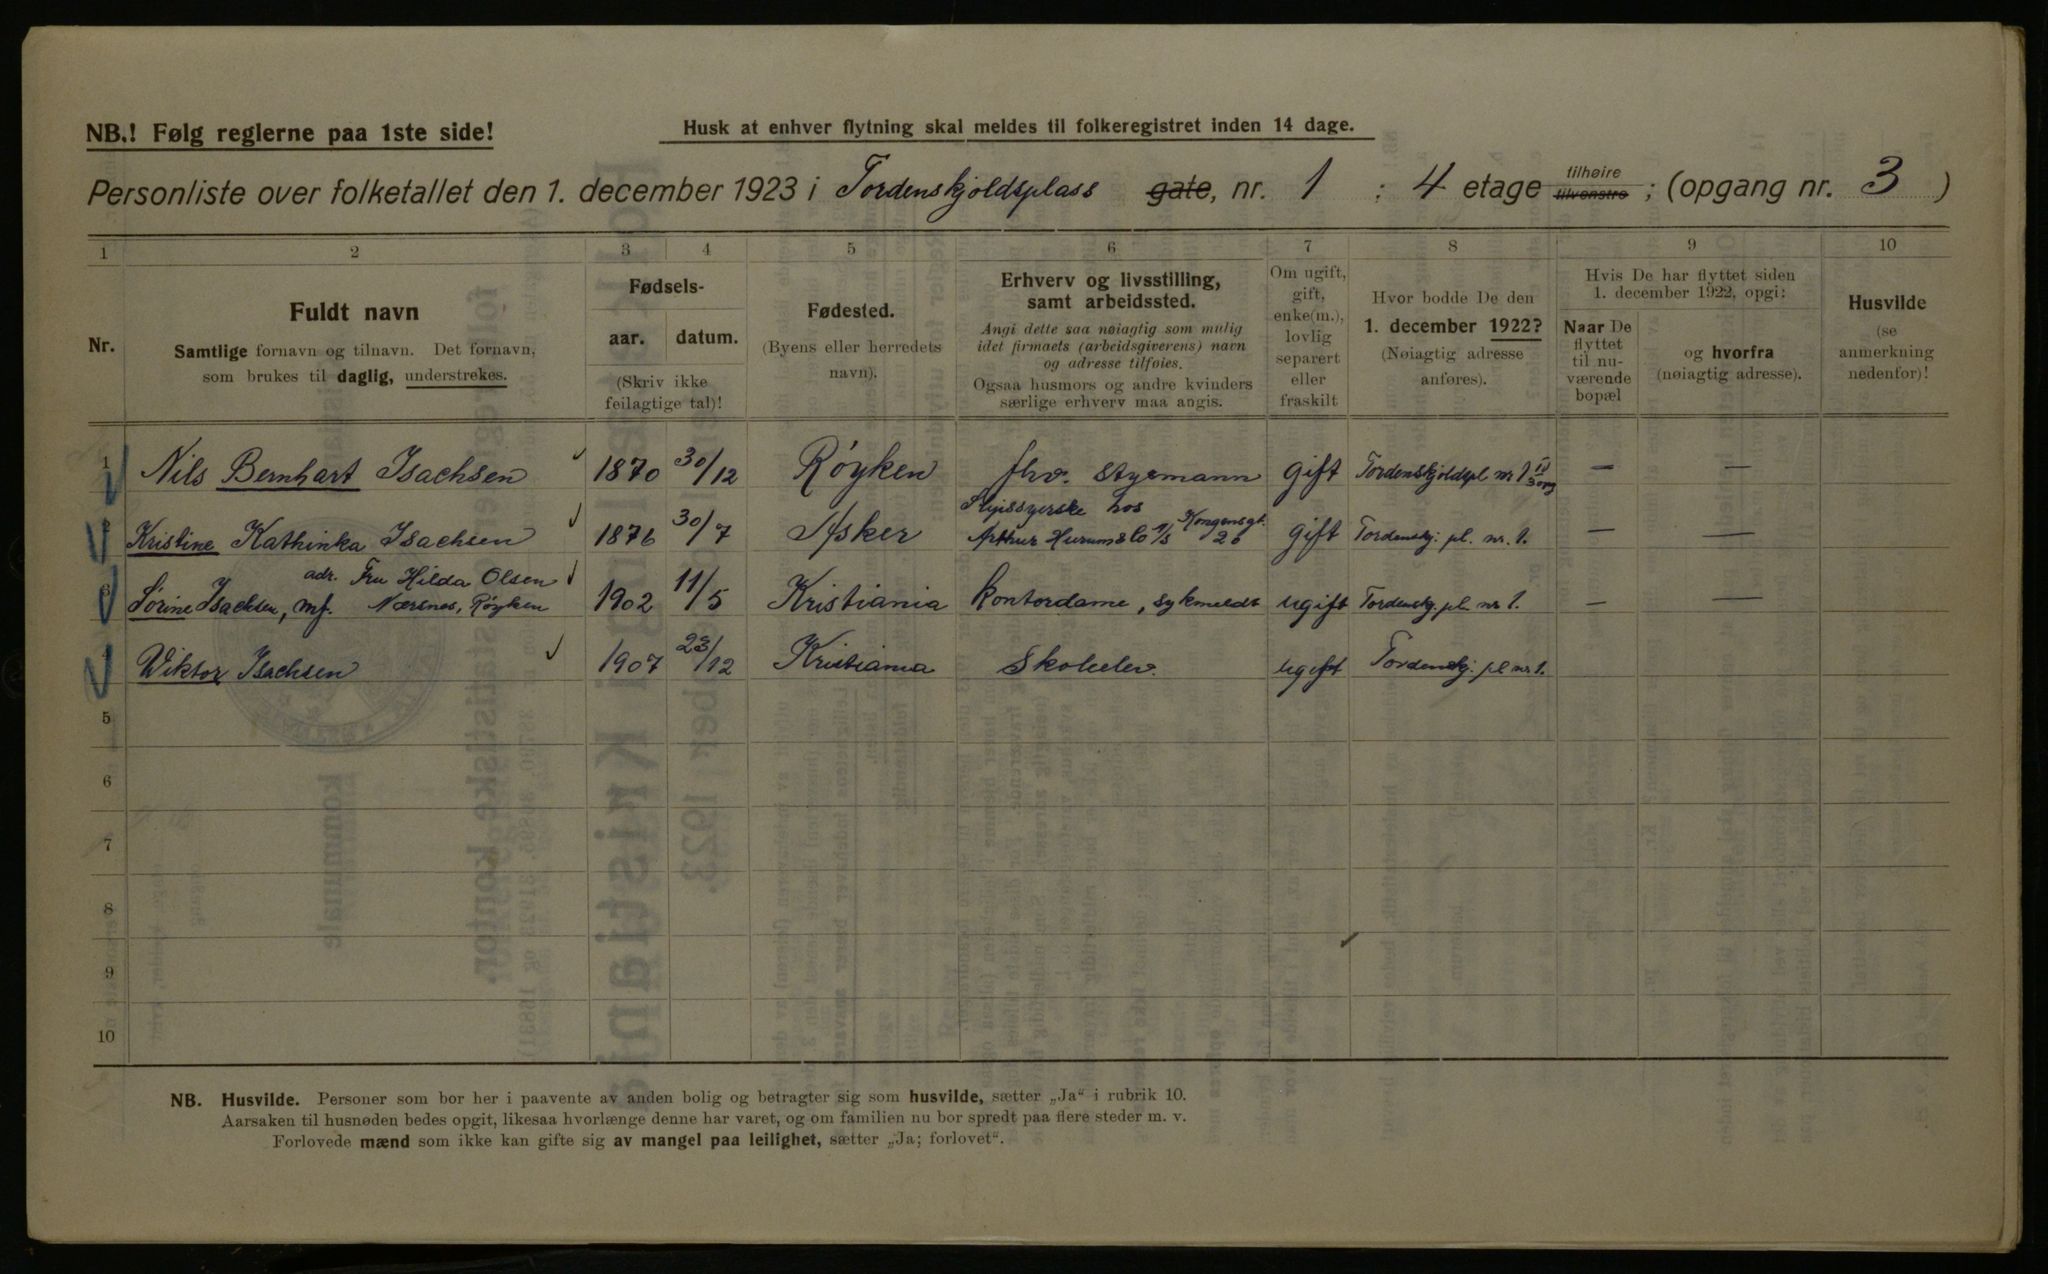 NB.! Følg reglerne paa 1ste side!
Husk at enhver flytning skal meldes til folkeregistret inden 14 dage.
Personliste over folketallet den 1. december 1923 i Tordenskjoldsplass gate, nr. 1 : 4 etage tilhøire tilvenstre ; (opgang nr. 3 )
1 2 3 4 5 6 7 8 9 10
Nr.
Fuldt navn
Samtlige fornavn og tilnavn. Det fornavn,
som brukes til daglig, understrekes.
Fødsels-
aar. datum.
(Skriv ikke
feilagtige tal)!
Fødested.
(Byens eller herredets
navn).
Erhverv og livsstilling,
samt arbeidssted.
Angi dette saa nøiagtig som mulig
idet firmaets (arbeidsgiverens) navn
og adresse tilføies.
Ogsaa husmors og andre kvinders
særlige erhverv maa angis.
Om ugift,
gift,
enke(m.),
lovlig
separert
eller
fraskilt
Hvor bodde De den
1. december 1922?
(Nøiagtig adresse
anføres).
Hvis De har flyttet siden
1. december 1922, opgi:
Naar De
flyttet
til nu-
værende
bopæl
og hvorfra
(nøiagtig adresse).
Husvilde
(se
anmerkning
nedenfor)!
1 Nils Bernhart Isachsen 1870 30/12 Røyken fhv. styrmann gift Tordenskjoldspl nr 1 — —
2 Kristine Kathinka Isachsen 1876 30/7 Asker hos Arthur Kongensgt. gift Tordenskj. pl. nr. 1. — —
adr. Fru Hilda Olsen
3 Sørine Isachsen, mf. Nærsnes, Røyken 1902 11/5 Kristiania kontordame, sykmeldt ugift Tordenskj. pl. nr 1. — —
4 Wiktor Isachsen 1907 23/12 Kristiania Skoleelev. ugift Tordenskj. pl nr. 1.
5
6
7
8
9
10
NB. Husvilde. Personer som bor her i paavente av anden bolig og betragter sig som husvilde, sætter „Ja“ i rubrik 10.
Aarsaken til husnøden bedes opgit, likesaa hvorlænge denne har varet, og om familien nu bor spredt paa flere steder m. v.
Forlovede mænd som ikke kan gifte sig av mangel paa leilighet, sætter „Ja; forlovet“.